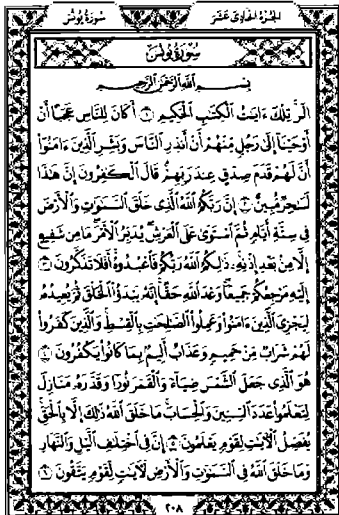 الجزء الحادي عشر سورة يونس
سورة يونس
بسم الله الرحمن الرحيم
الٓر تلك ءايت الكتب الحكيم ١ أكان للناس عجبا أن
أوحينا إلى رجل منهم أن أنذر الناس وبشر الذين ءامنوا
أن لهم قدم صدق عند ربهم قال الكفرون إن هذا
لسحر مبين ٢ إن ربكم الله الذي خلق السموت والأرض
في ستة أيام ثم استوى على العرش يدبر الأمر ما من شفيع
إلا من بعد إذنه ذلكم الله ربكم فاعبدوه أفلا تذكرون ٣
إليه مرجعكم جميعا وعد الله حقا إنه يبدؤا الخلق ثم يعيده
ليجزي الذين ءامنوا وعملوا الصلحت بالقسط والذين كفروا
لهم شراب من حميم وعذاب أليم بما كانوا يكفرون ٤
هو الذي جعل الشمس ضياء والقمر نورا وقدره منازل
لتعلموا عدد السنين والحساب ما خلق الله ذلك إلا بالحق
يفصل الأيت لقوم يعلمون ٥ إن في اختلف اليل والنهار
وما خلق الله في السموت والأرض لأيت لقوم يتقون ٦
٢٠٨